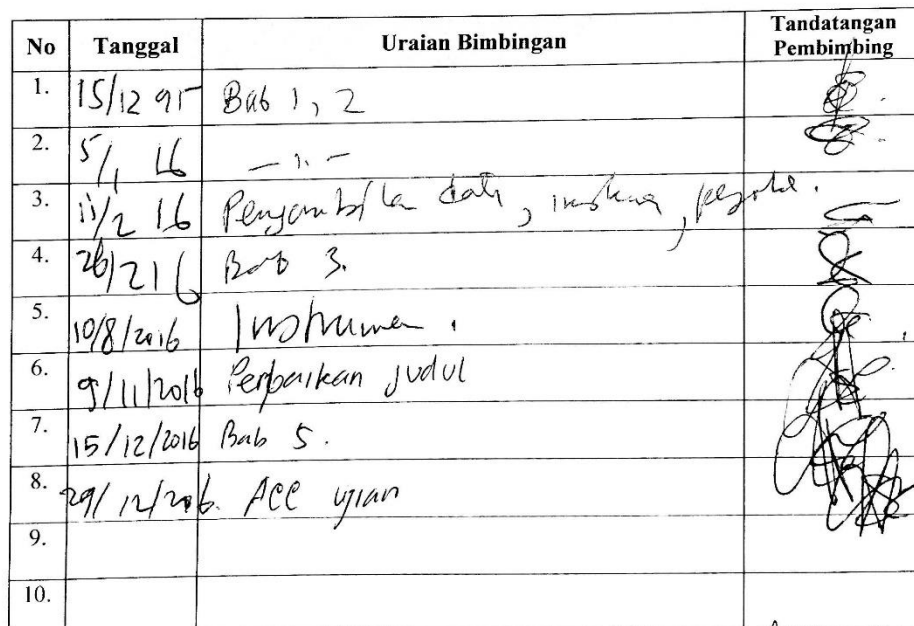 No Tanggal Uraian Bimbingan Tandatangan Pembimbing
1. 15/12 Bab 1, 2
2. 5/1 16 - 1. -
3. 11/2 16 Pengambilan data,
4. 26/2 16 Bab 3.
5. 10/8/2016 Instrumen.
6. 9/11/2016 Perbaikan judul
7. 15/12/2016 Bab 5.
8. 29/12/2016. ACC ujian
9.
10.